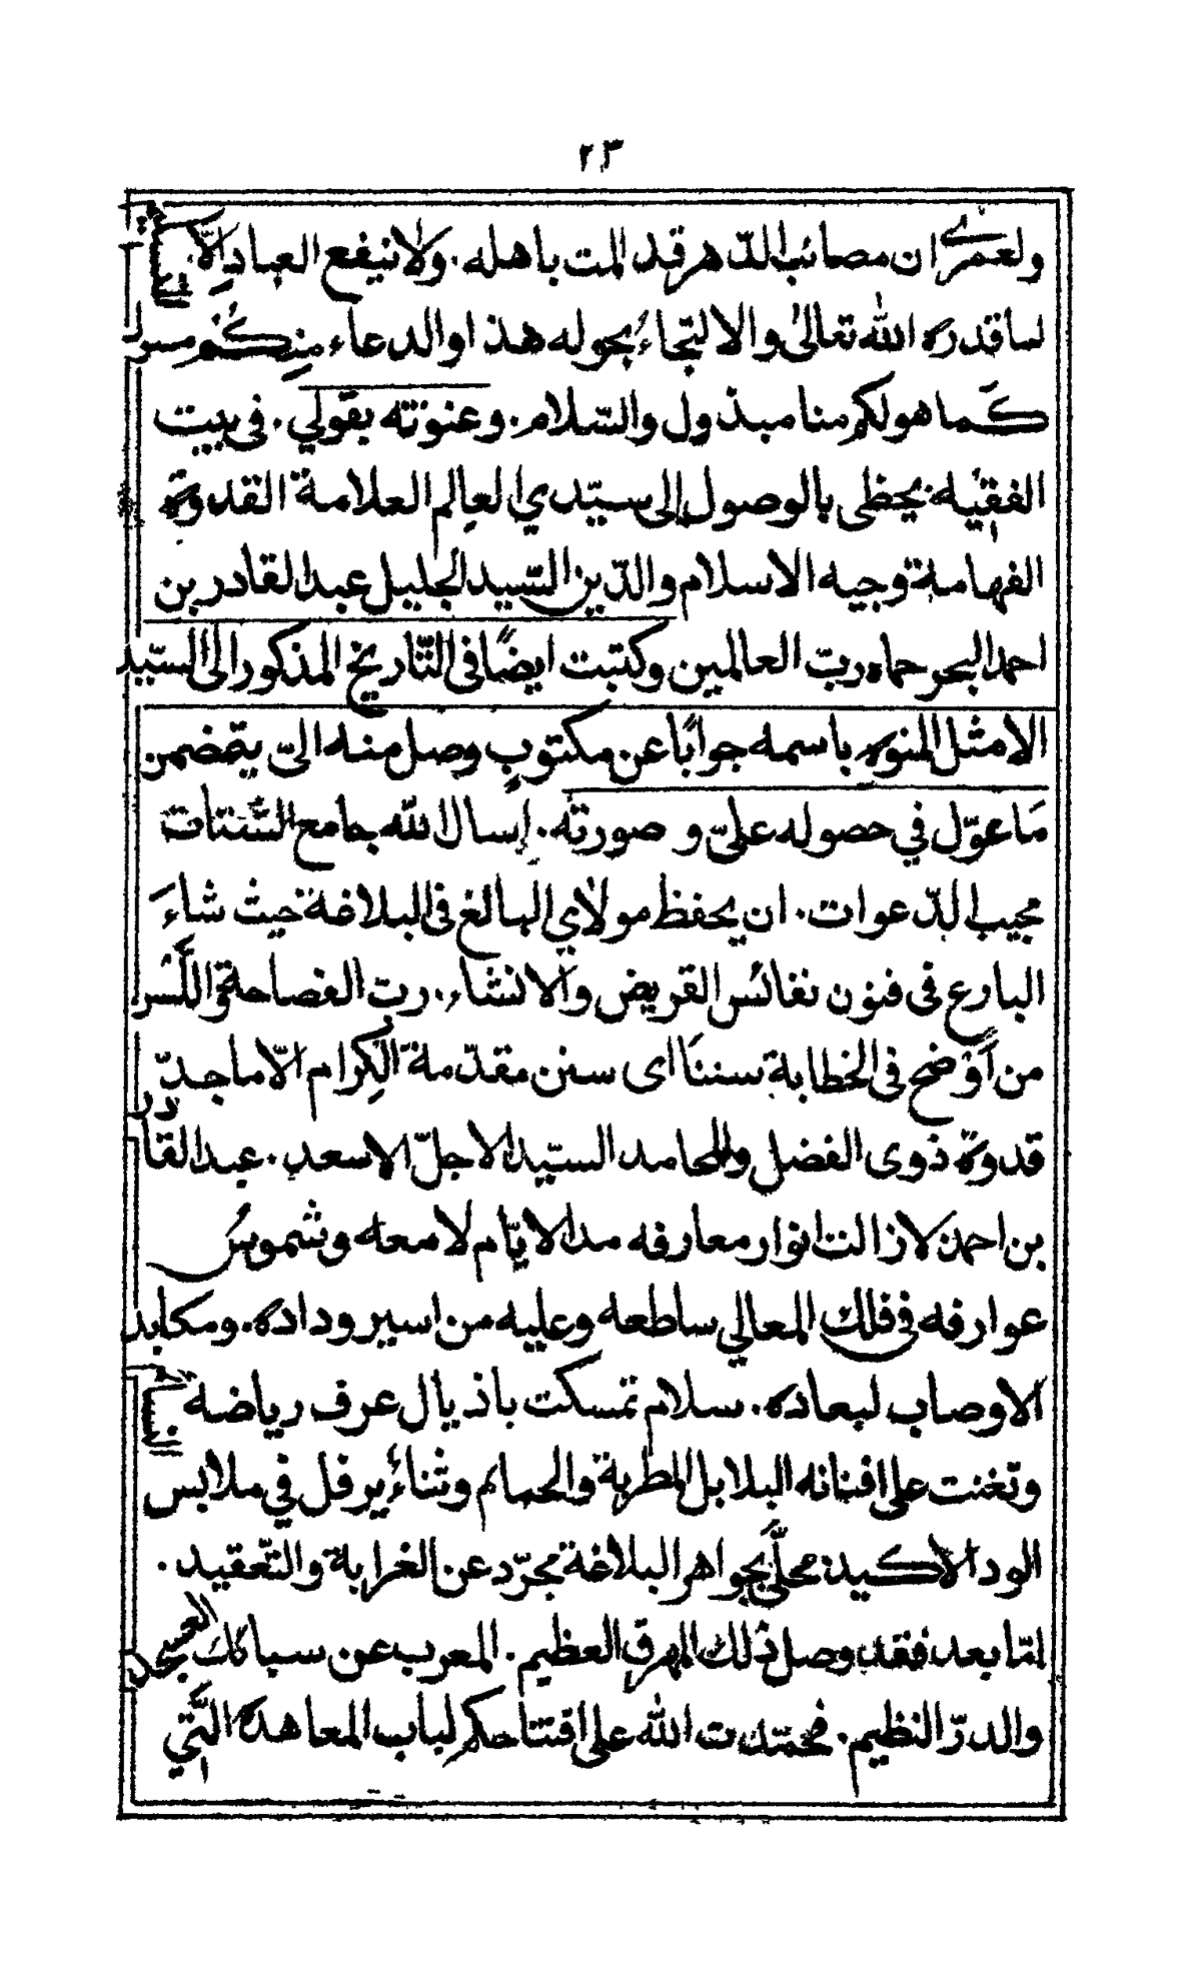 ٢٣
ولعمري ان مصائب الدّهر قد المت باهله. ولا ينفع العباد الّا
لما قدره الله تعالى والالتجاء بحوله هذا والدعاء منكم مسئول
كما هو لكم منا مبذول والسّلام. وعنونته بقولي. في بيت
الفقيه يحظى بالوصول إلى سيّدي العالم العلامة القدوة
الفهامة وجيه الاسلام والدّين السّيد الجليل عبد القادر بن
احمد البحر حماه ربّ العالمين وكتبت ايضًا في التّاريخ المذكور الى السّيد
الامثل المنوه باسمه جوابًا عن مكتوبٍ وصل منه اليّ يتضمن
مَا عوّل في حصوله عليّ و صورته. إسال الله جامع الشّتات
مجيب الدّعوات. ان يحفظ مولاي البالغ في البلاغة حيث شاءَ
البارع في فنون نفائس القريض والانشاء. ربّ الفصاحة واللَّسَن
من أوضح في الخطابة سننًا اي سنن مقدّمة الكِرام الاماجد
قدوة ذوى الفضل والمحامد السيّد الاجلّ الاسعد. عبد القادر
بن احمد لا زالت انوار معارفه مدا الايّام لامعه وشموسُ
عوارفه في فلك المعالي ساطعه وعليه من اسير وداده. ومكابد
الاوصاب لبعاده. سلام تمسكت باذيال عرف رياضه
وتغنت على افنانه البلابل المطربة والحمائم وثناءٌ يرفل في ملابس
الود الاكيد محلّىً بجواهر البلاغة مجرّد عن الغرابة والتّعقيد.
امّا بعد فقد وصل ذلك المهرق العظيم. المعرب عن سبائك العسجد
والدرّ النظيم. فحمدت الله على افتتاحكم لباب المعاهده الَّتي